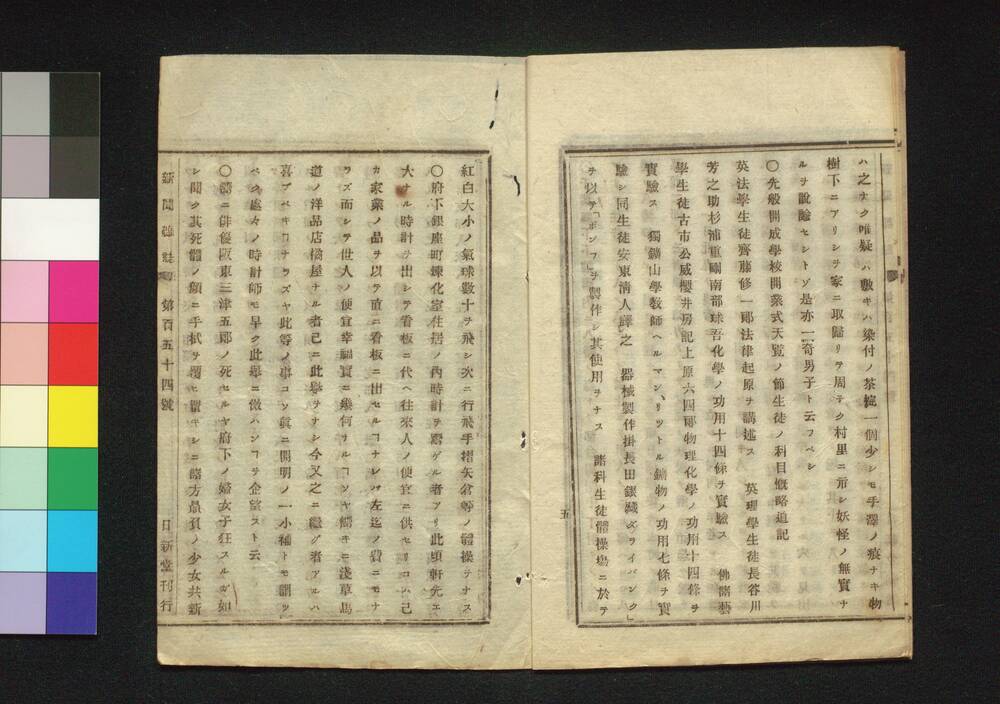 ハ之ナク唯疑ハ敷キハ染付ノ茶捥一個少シモ手澤ノ痕ナキ物
樹下ニアリシヲ家ニ取歸リテ周テク村里ニ示シ妖怪ノ無實ナ
ルヲ說諭セシトゾ是亦一奇男子ト云フベシ
〇先般開成學校開業式天覽ノ節生徒ノ科目概略追記
英法學生徒齊藤修一郎法律起原ヲ講述ス 英理學生徒長谷川
芳之助杉浦重剛南部球吾化學ノ功用十四條ヲ實驗ス 佛諸藝
學生徒古市公威櫻井房記上原六四郎物理化學ノ功用十四條ヲ
實驗ス 獨鑛山學敎師ヘルマン、リットル鑛物ノ功用七條ヲ實
驗シ同生徒安東淸人譯之 器械製作掛長田銀 ダライバンク」
ヲ以テ「ポンプ」ヲ製作シ其使用ヲナス 諸科生徒體操場ニ於テ
五
紅白大小ノ氣球數十ヲ飛シ次ニ行飛手摺矢倉等ノ體操ヲナス
〇府下銀座町煉化室住居ノ內時計ヲ鬻ゲル者アリ此頃軒先エ
大ナル時計ヲ出シテ看板ニ代ヘ往來人ノ便宜ニ供セリコハ己
カ家業ノ品ヲ以テ直ニ看板ニ出セルヿナレバ左迄ノ費ニモナ
ラズ而シテ世人ノ便宜幸福實ニ幾何ソルヿソヤ キニ淺草馬
道ノ洋品店 屋ナル者已ニ此擧ヲナシ今又之ニ繼グ者アルハ
喜ブベキヿナラズヤ此等ノ事コソ眞ニ開明ノ一小補トモ謂ツ
ベク處々ノ時計師モ早ク此擧ニ傚ハンヿヲ企望スト云
〇 ニ俳優阪東三津五郎ノ死セルヤ府下ノ婦女子狂スルガ如
シ聞ク其死體ノ顏ニ手拭ヲ覆ヒ置キシニ諸方贔負ノ少女共新
新聞雜誌 第百五十四號 日新堂刊行